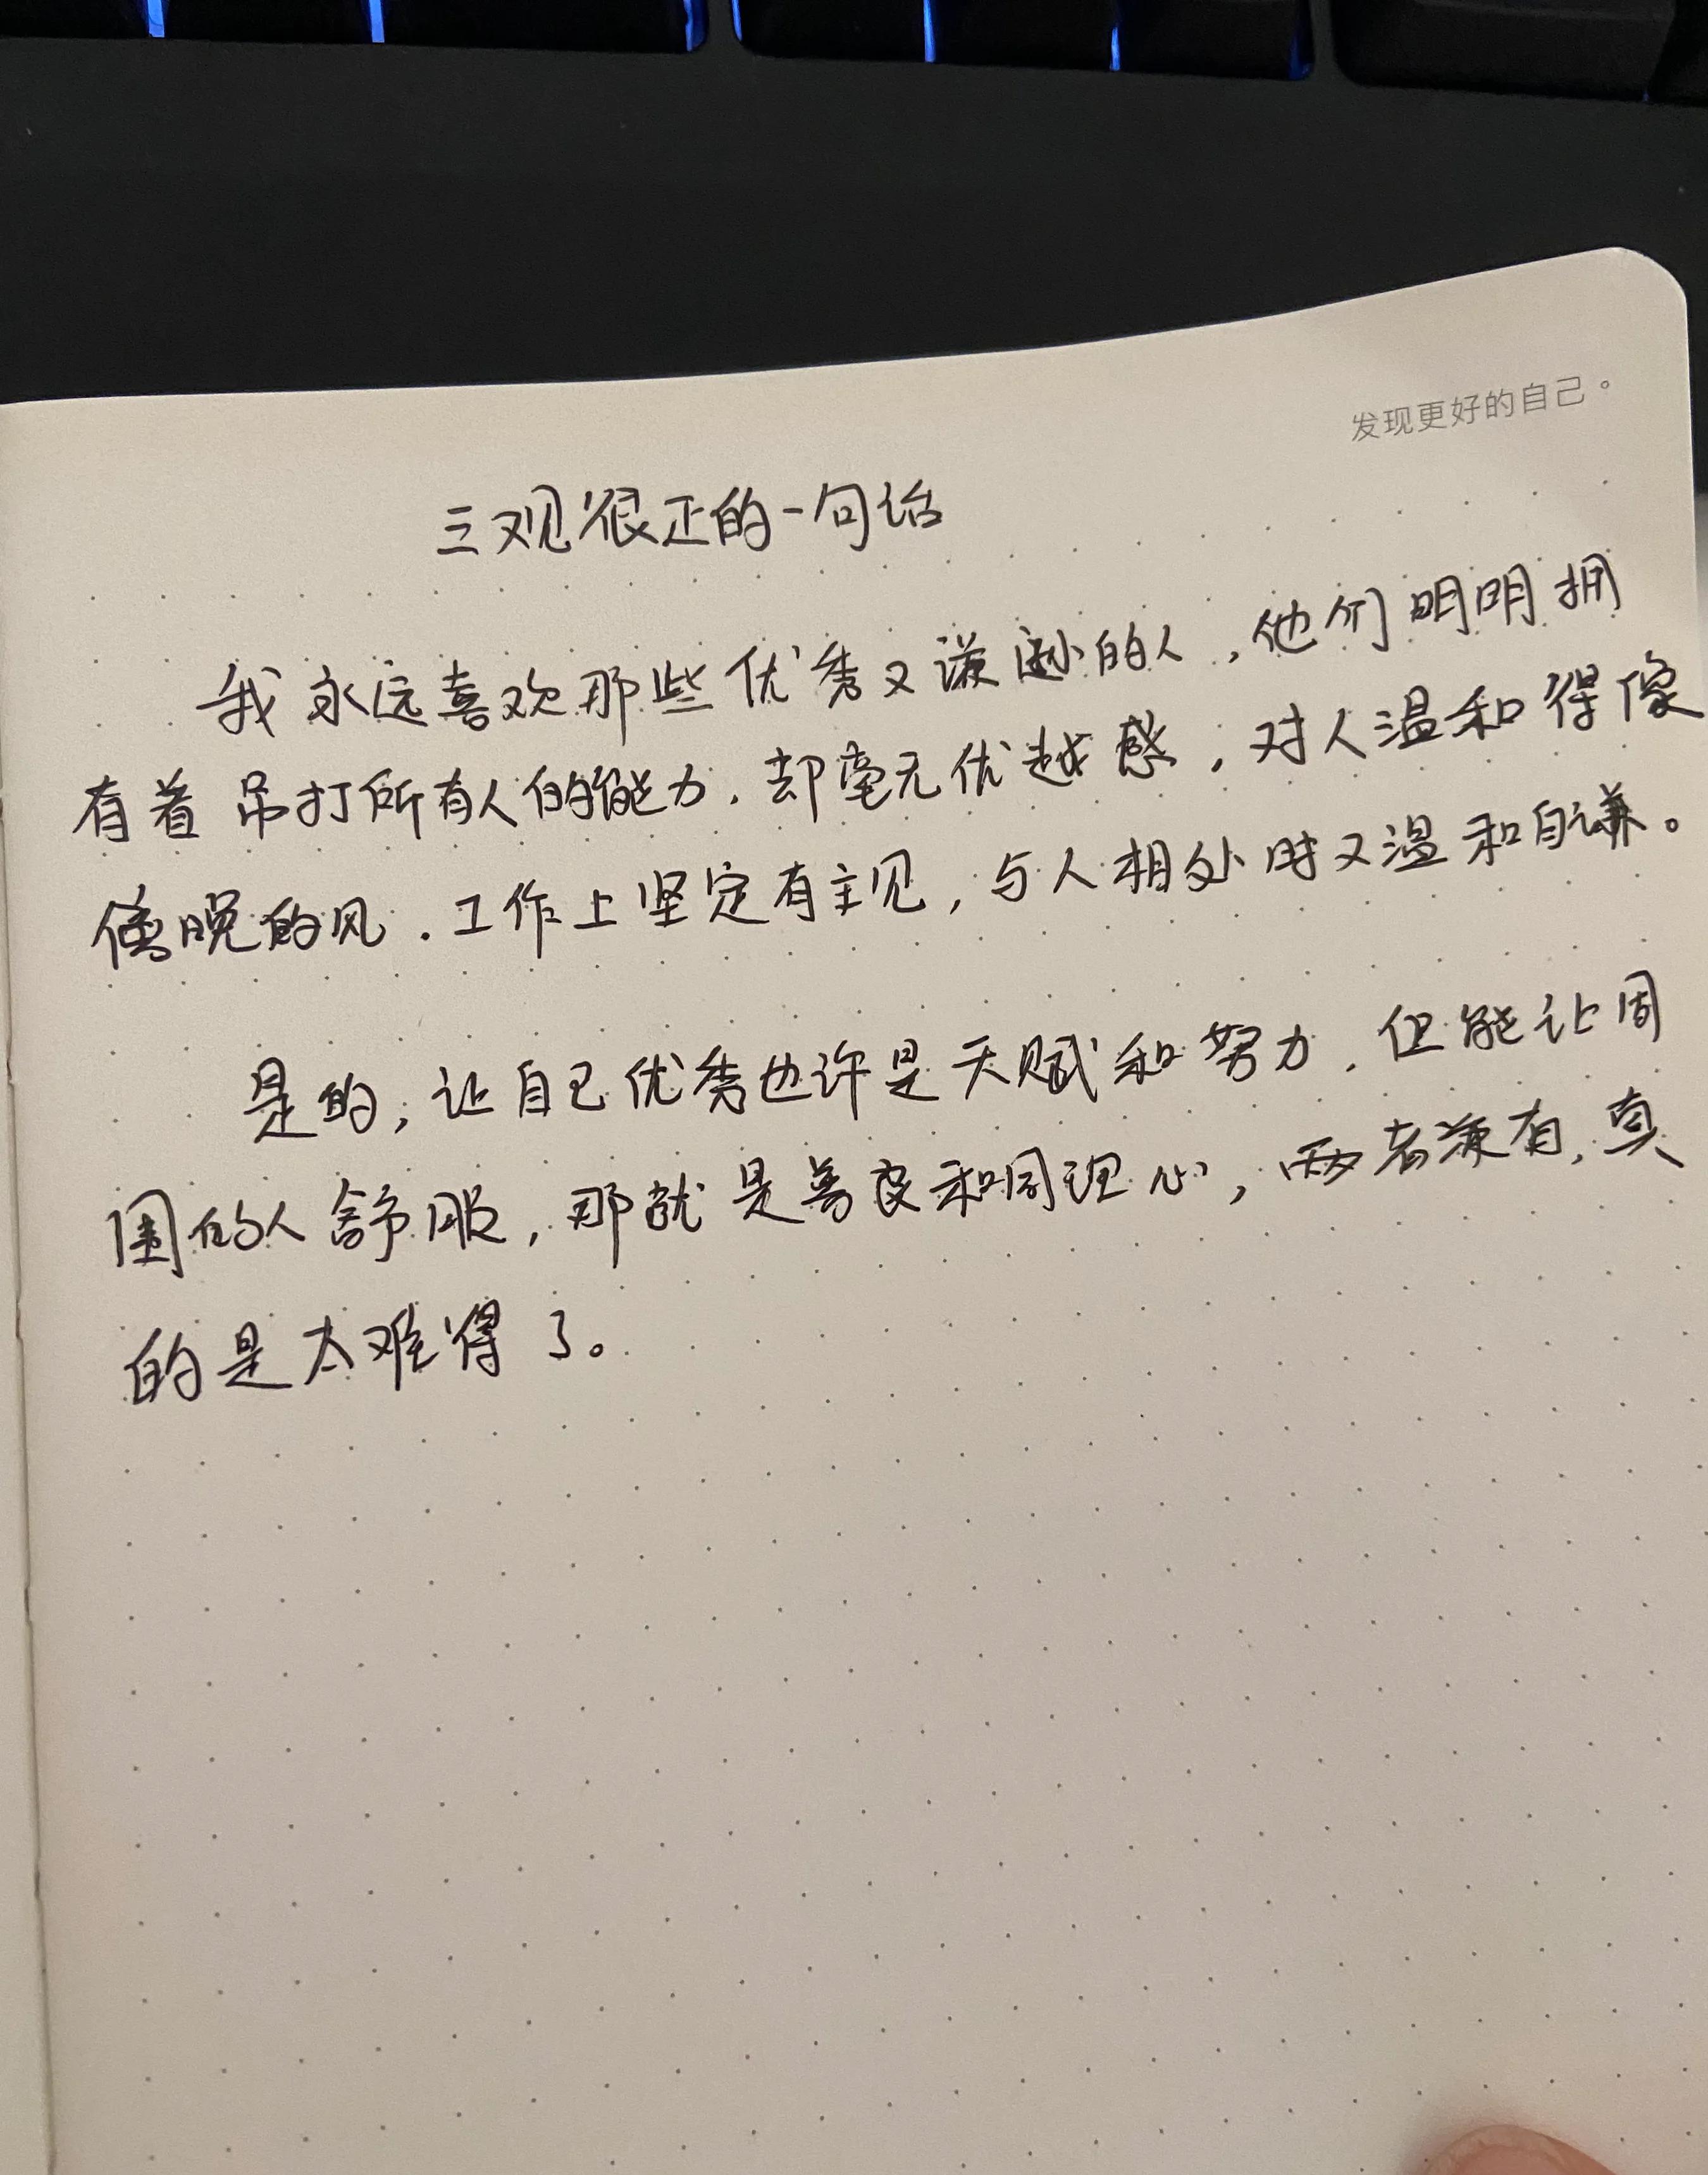 发现更好的自己。
三观很正的一句话
我永远喜欢那些优秀又谦逊的人，他们明明拥
有着吊打所有人的能力，却毫无优越感，对人温和得像
傍晚的风．工作上坚定有主见，与人相处时又温和自谦。
是的，让自己优秀也许是天赋和努力，但能让周
围的人舒服，那就是善良和同理心，两者兼有，真
的是太难得了。